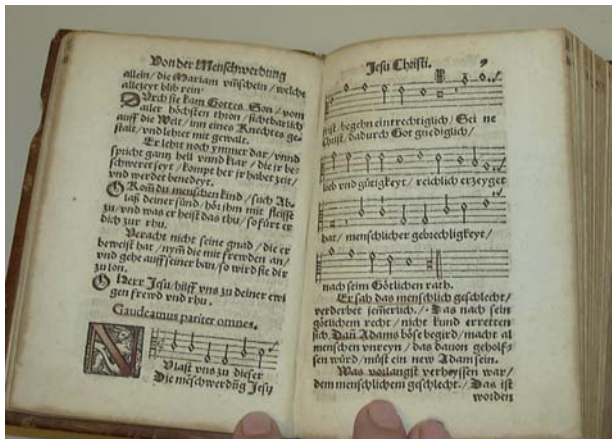 Von der Menschwerdung
allein / die Mariam vmschein / welche
allezeyt blib rein
Durch sie kam Gottes Son / vom
aller höchsten thron / sichtbarlich
auff die Welt / inn eines Knechtes ge-
stalt / vnd lehret mit gewalt.
Er lehrt noch ymmer dar / vnnd
spricht gantz hell vnnd klar / die jr be-
schweret seyt / kompt her jr habet zeit /
vnd werdet benedeyt.
O Kom du menschen kind / such Ab-
laß deiner sünd / hör ihn mit fleisse
zu / vnd was er heist das thu / so fürt er
dich zur rhu.
Veracht nicht seine gnad / die er
beweist hat / nym die mit frewden an /
vnd gehe auff seiner ban / so wird sie dir
zu lon.
O Herr Jesu / hilff vns zu deiner ewi
gen frewd vnd rhu.
Gaudeamus pariter omnes.
N Vlast vns zu dieser
Die mēschwerdūg Jesu
Jesu Christi. 9
frist / begehn eintrechtiglich / Sei ne
Christ / dadurch Got gnediglich /
lieb vnd gütigkeyt / reichlich erzeyget
hat / menschlicher gebrechligkeyt /
nach seim Götlichen rath.
Er sah das menschlich geschlecht /
verderbet jemerlich. / Das nach sein
götlichem recht / nicht kund erretten
sich. Dañ Adams böse begird / macht al
menschen vnreyn / das dauon geholf-
sen würd / müst ein new Adam sein.
Was vorlangst verheyssen war /
dem menschlichem geschlecht. / Das ist
worden